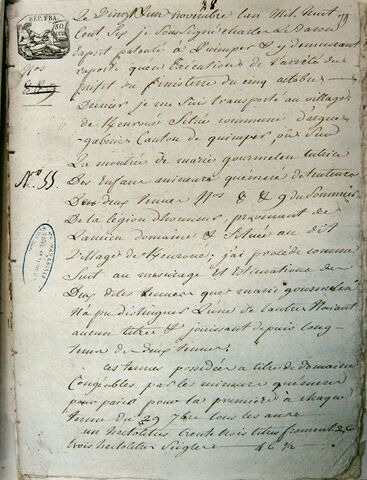 REP. FRA.
Le Vingt un novembre l'an Mil huit
Cent Six, je Soussigné Charles Le Baron
Expert patenté à Quimper & y demeurant
rapporte qu'en Exécution de l'arrêté du
préfet du finistère du cinq octobre
Dernier je me Suis transporté au village
de Kerroué Située commune d'ergué
gabéric Canton de quimper, où Sur
La montrée de marie gourmelon tutrice
Des Enfans mineurs quéméré détenteurs
Des deux tenues Nos 8 & 9 du Sommier
De la légion d'honneur, provenant de
L'ancien domaine & Située au dit
Village de Kerroué, j'ai procédé comme
Suit au mesurage et Estimations de
Deux dites tenues que marie gourmelon
N'a pu distinguer L'une de L'autre N'aiant
aucun titre & jouissant depuis long-
tems de deux tenues.
Ces tenues possédées à titre de domaine
Congéable par le mineurs quéméré
pour païer pour la première à chaque
terme du 29 7bre tous les ans
un hectolitre trente trois litres froment
trois hectolitres Seigle
No 55